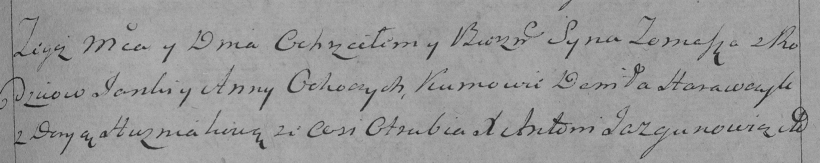 Tegoż Mca y Dnia Ochrzciłem y Bierzm Syna Tomasza z Ro
dzicow Janki y Anny Ochocych, Kumowie Daniła Harawczyk
z Huzniakową ze wsi Otrubia X Antoni Jazgunowicz